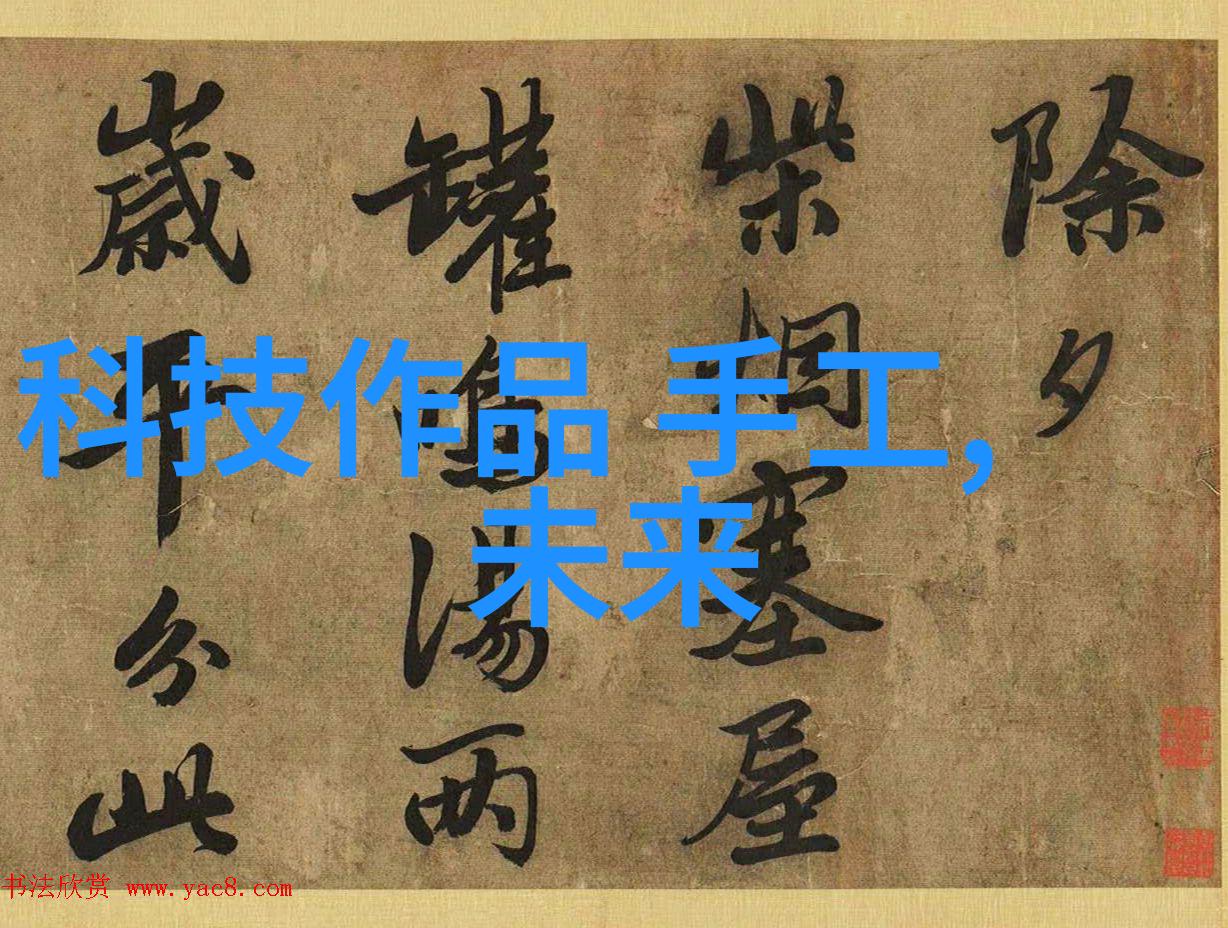 除夕
柴烟塞屋
罐鳴湯两
歲平分此
科技作品 手工,
未来
书法欣赏 www.yac8.com